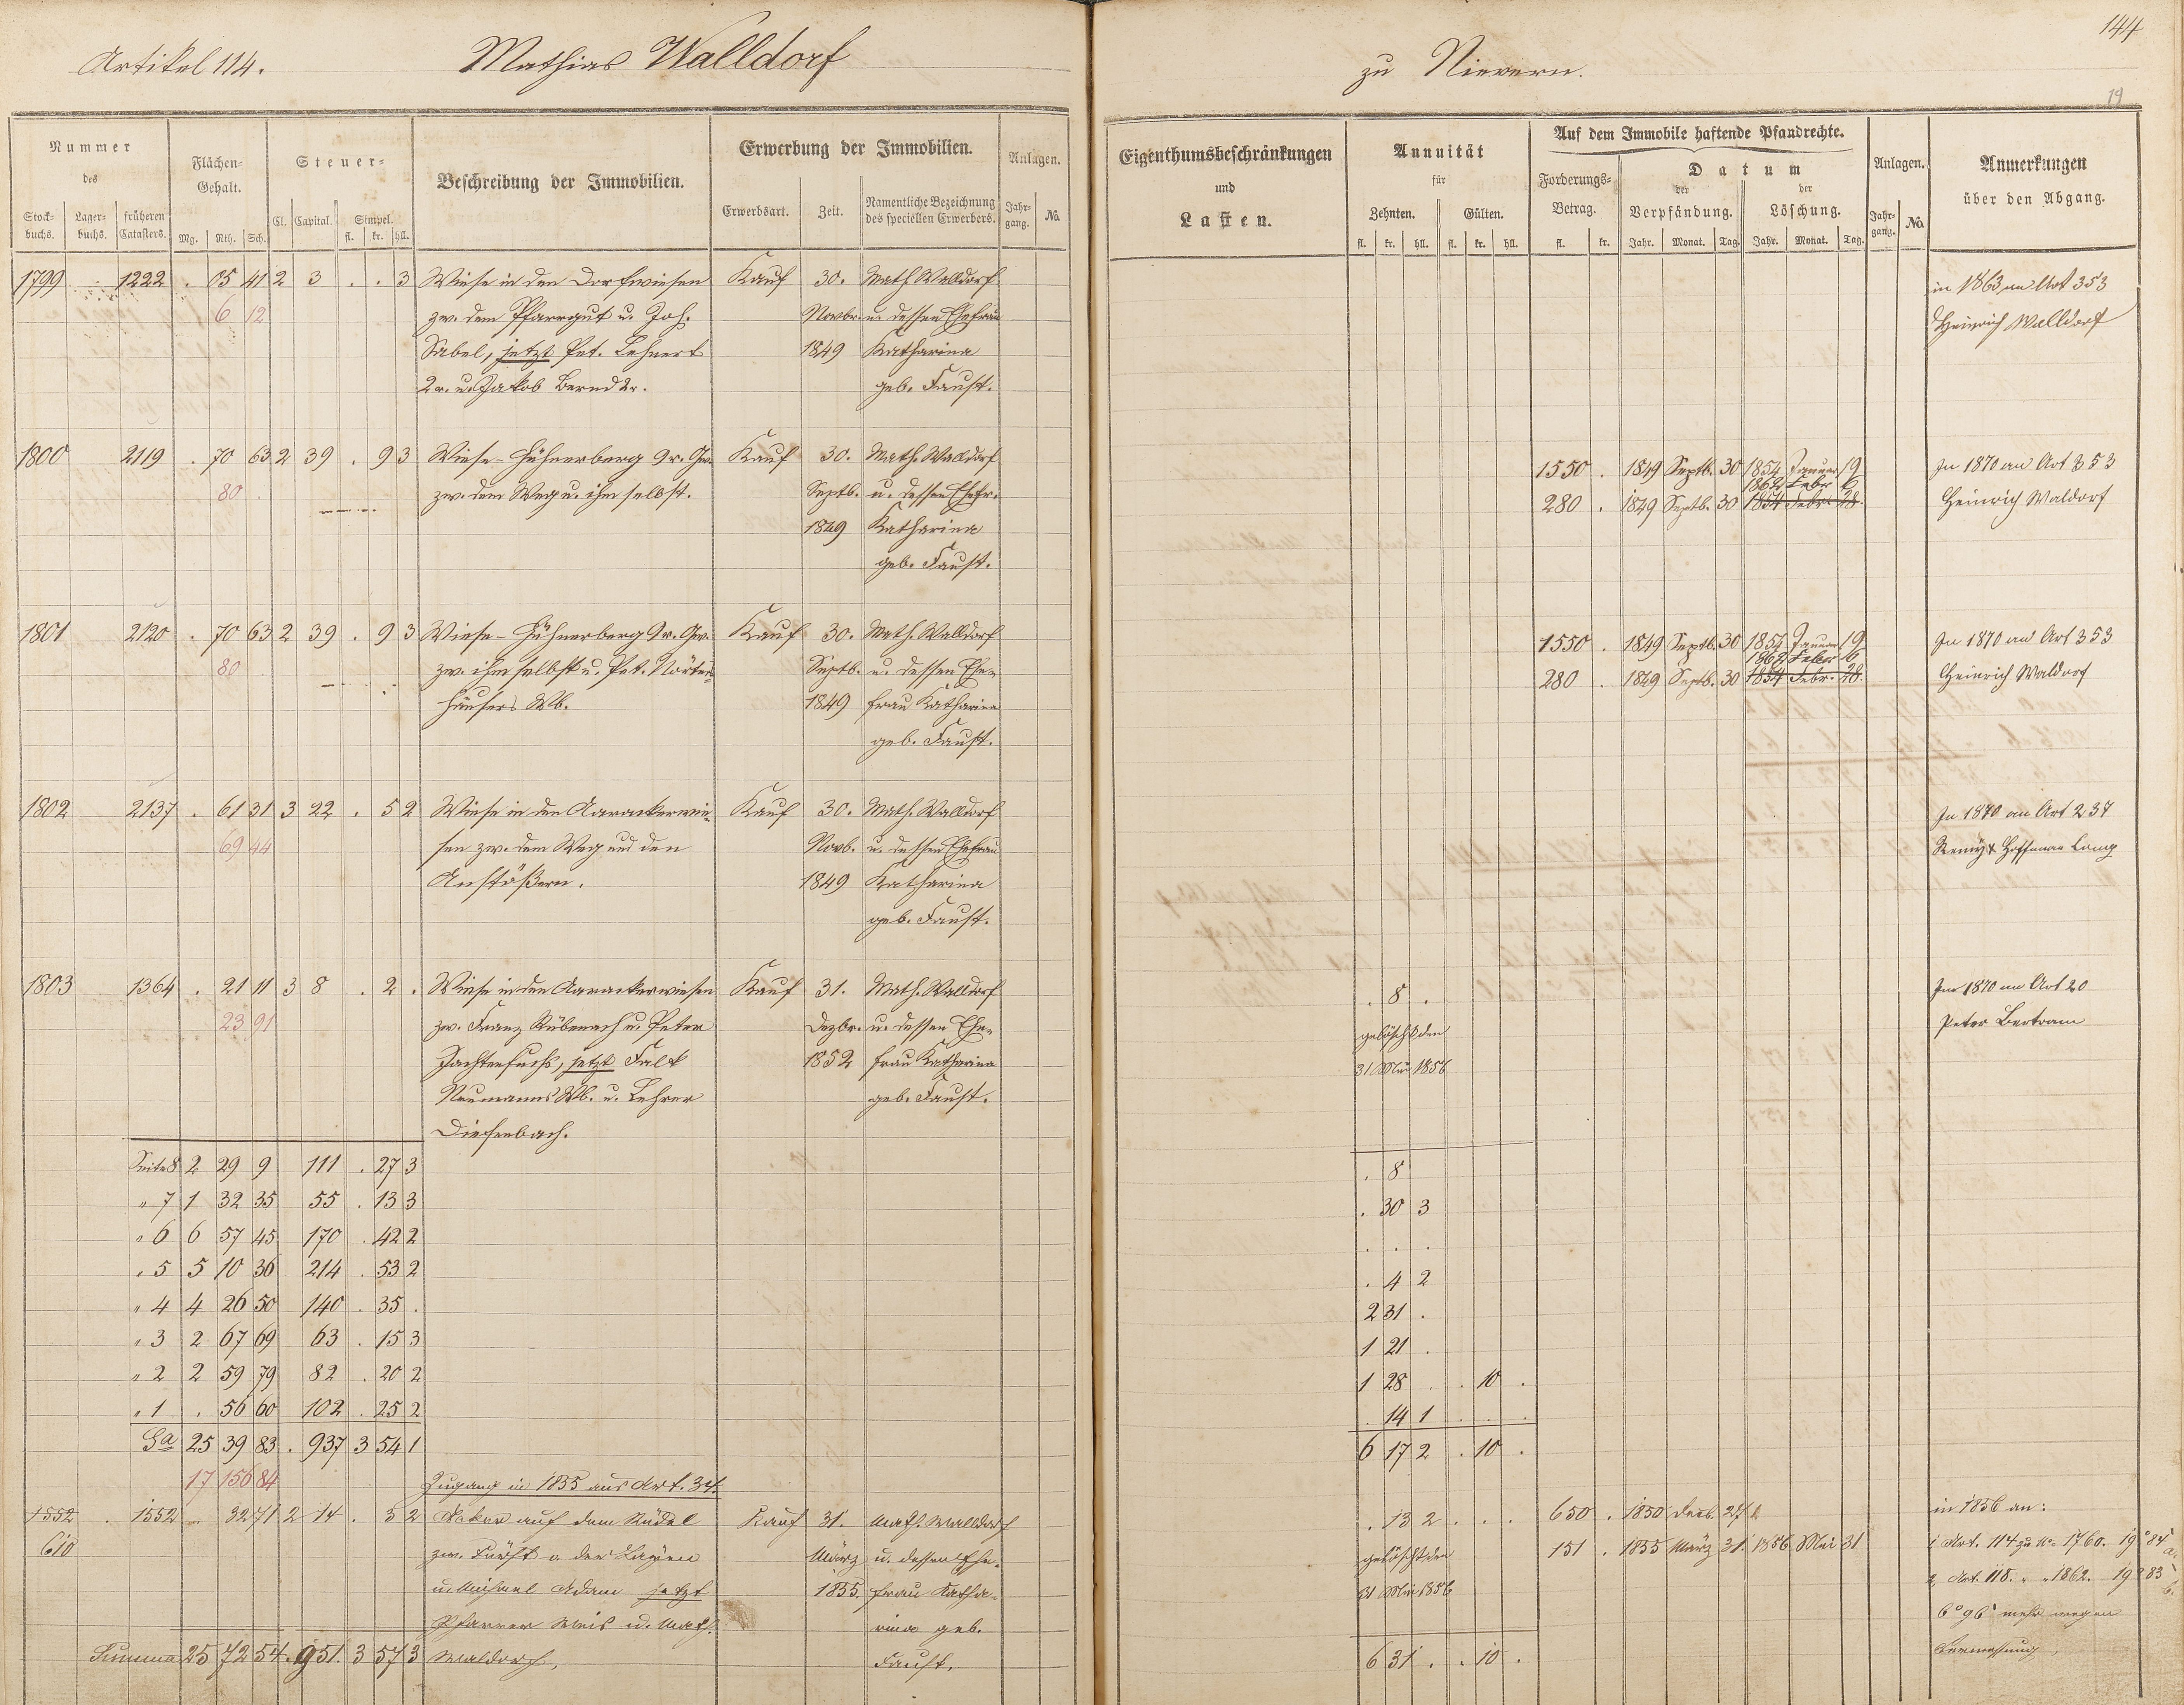 144
Artikel 114. Mathias Walldorf zu Nievern.
19
Nummer des
Stockbuchs. Lagerbuchs. früheren Catasters.
Flächen-Gehalt.
Mg. Rth. Sch.
Steuer-
Cl. Capital. Simpel.
fl. kr. hll.
Beschreibung der Immobilien.
Erwerbung der Immobilien.
Erwerbsart. Zeit. Namentliche Bezeichnung des speciellen Erwerbers.
Anlagen.
Jahrgang. No.
Eigenthumsbeschränkungen
und
Lasten.
Annuität
für
Zehnten. Gülten.
fl. kr. hll. fl. kr. hll.
Auf dem Immobile haftende Pfandrechte.
Forderungs-Betrag.
fl. kr.
Datum
der Verpfändung. der Löschung.
Jahr. Monat. Tag. Jahr. Monat. Tag.
Anlagen.
Jahrgang. No.
Anmerkungen
über den Abgang.
1799 1222 . 05 41 2 3 . . 3 Wiese in den Dorfwiesen Kauf 30. Math Walldorf in 1863 an Art 353
6 12 zw. dem Pfarrgut u. Joh. Novbr. u. dessen Ehefrau Heinrich Walldorf
Sabel, jetzt Pet. Lehnert 1849 Katharina
2r. u. Jakob Bernd 2r. geb. Faust.
1800 2119 . 70 63 2 39 . 9 3 Wiese-Hühnerberg 9r. Gw. Kauf 30. Math. Walldorf 1550 . 1849 Septb. 30 1854 Januar 19 In 1870 an Art 353
80 . zw. dem Weg u. ihm selbst. Septb. u. dessen Ehefr. 1862 Febr 6
280 . 1849 Septb. 30 1854 Febr. 28. Heinrich Waldorf
1849 Katharina
geb. Faust.
1801 2120 . 70 63 2 39 . 9 3 Wiese-Hühnerberg 9r. Gw. Kauf 30. Math. Walldorf 1550 . 1849 Septb. 30 1854 Januar 19 In 1870 an Art 353
80 zw. ihm selbst u. Pet. Nörters- Septb. u. dessen Ehe- 1862 Febr 6
280 . 1849 Septb. 30 1854 Febr. 28. Heinrich Waldorf
häusers Wb. 1849 frau Katharina
geb. Faust.
1802 2137 . 61 31 3 22 . 5 2 Wiese in den Aarackerwie- Kauf 30. Math. Walldorf In 1870 an Art 237
69 44 sen zw. dem Weg und den Novb. u. dessen Ehefrau Remÿ & Hoffmann
Anstößern. 1849 Katharina
geb. Faust.
1803 1364 . 21 11 3 8 . 2 . Wiese in den Aarackerwiesen Kauf 31. Math. Walldorf . 8 . In 1870 an Art 20
23 91 zw. Franz Rübenach u. Peter Dezbr. u. dessen Ehe- gelöscht den Peter Bertram
jetzt Falk 1852 frau Katharina 31 Mai 1856
Neumanns Wb. u. Lehrer geb. Faust.
Diefenbach.
Seite 8 2 29 9 111 . 27 3 . 8
" 7 1 32 35 55 . 13 3 . 30 3
" 6 6 57 45 170 . 42 2 . . .
" 5 5 10 36 214 . 53 2 . 4 2
" 4 4 26 50 140 . 35 . 2 31 .
" 3 2 67 69 63 . 15 3 1 21 .
" 2 2 59 79 82 . 20 2 1 28 . . 10 .
" 1 . 56 60 102 . 25 2 . 14 1 . . .
Sa 25 39 83 . 937 3 54 1 6 17 2 . 10 .
17 156 84
Zugang in 1855 aus Art. 34.
1552 . 1552 . 32 71 2 14 . 3 2 Acker auf dem Rüdel Kauf 31. Math. Walldorf . 13 2 . . . 650 . 1850 Decb. 27 in 1856 an:
610 März u. dessen Ehe- gelöscht den 151 . 1855 März 31. 1856 Mai 31 1, Art. 114 zu No. 1760. 19° 84'
u. Michael Adam jetzt 1855. frau Katha- 31 Mai 1856 2, Art. 118. " " 1862. 19° 83'
Pfarrer Weis u. Math. rina geb. 6° 96' mehr wegen
Summa 25 72 54 . 951. 3 57 3 Waldorf. Faust. 6 31 . . 10 . Vermessung.